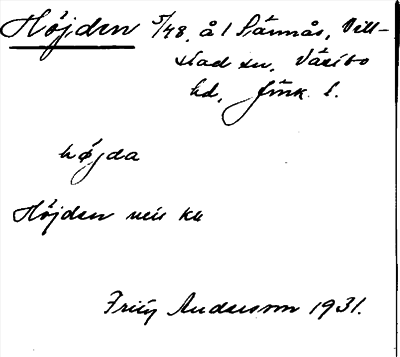 Höjden 5/48, å 1 Sännås, Vill-
stad sn, Västbo
hd, Jönk. l.
höjda
Höjden
Fritz Andersson 1931.